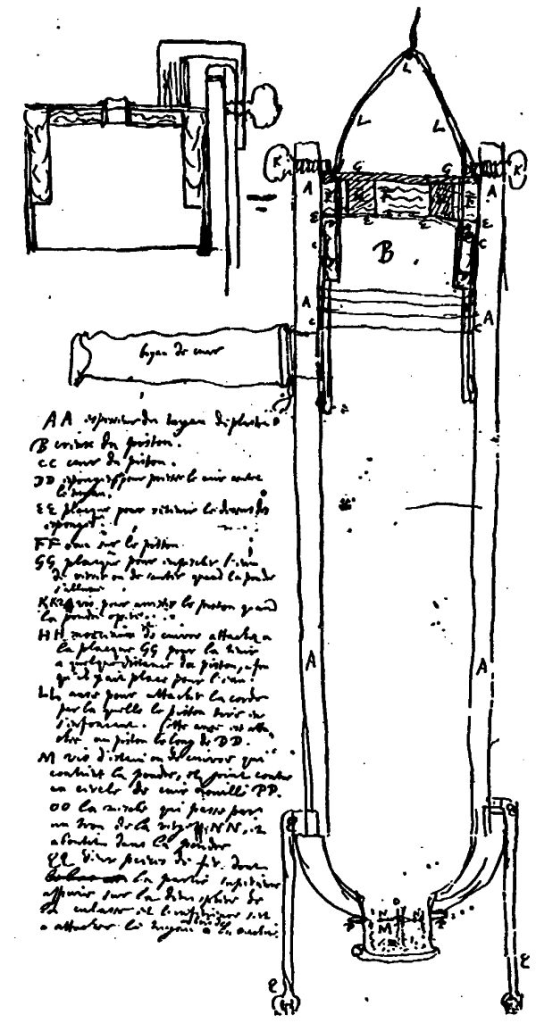 L
L L
K K
A G G A
E E
C E E C
B
A A
C
tuyau de cuir
A A epaisseur du tuyau
B creux du piston.
CC cuir du piston.
DD pour presser le cuir contre
le tuyau.
EE plaque pour retenir le dessous des
eponges.
FF eau sur le piston.
GG plaque pour empescher l'eau
de ou de sauter quand la poudre
s'allume.
KK vis pour arrester le piston quand
la poudre opere
HH morceaux de cuivre attachez a
la plaque GG pour la tenir
a quelque distance du piston, afin
qu'il y ait place pour l'eau.
LL anse pour attacher la corde
par laquelle le piston
s'enfoncent. Cette anse est atta-
chée au piston le long de DD.
M vis d'etain ou de cuivre qui
contient la poudre, et joint contre
un cercle de cuir mouillé PP.
OO la meche qui passe par
un trou de la vis NN, et
aboutit dans la poudre
QQ deux pieces de fer dont
la partie superieure
appuie sur la de
la culasse et l'inferieure sert
a attacher le tuyau a la
A A
Q Q
O
N N
M
Q Q